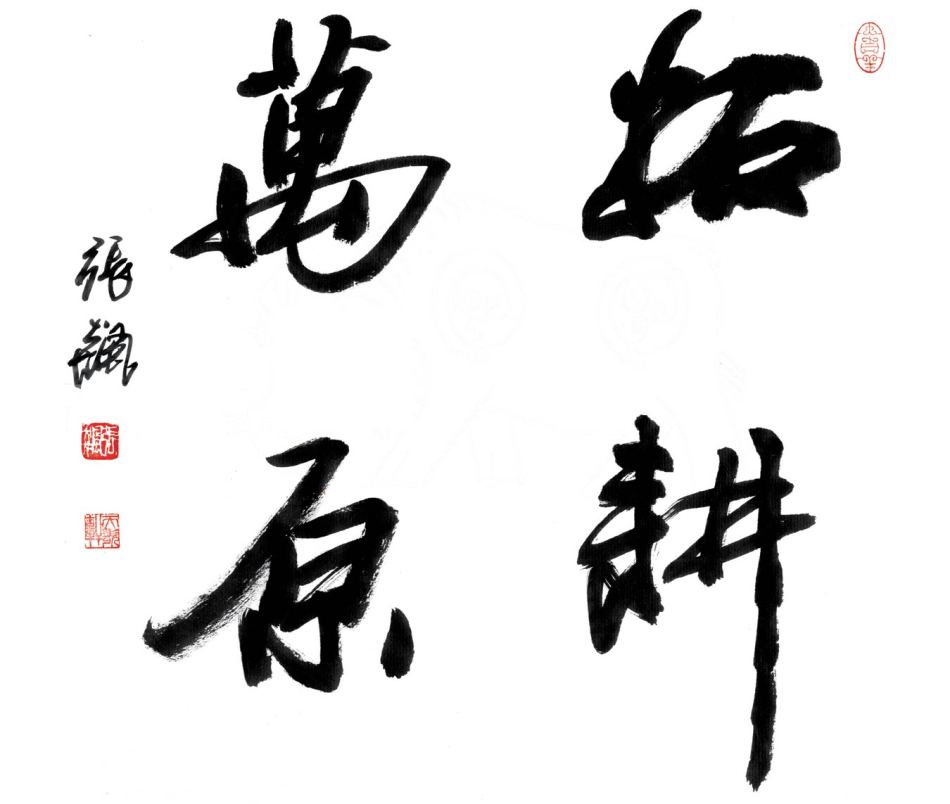 拓耕
萬原
張飆